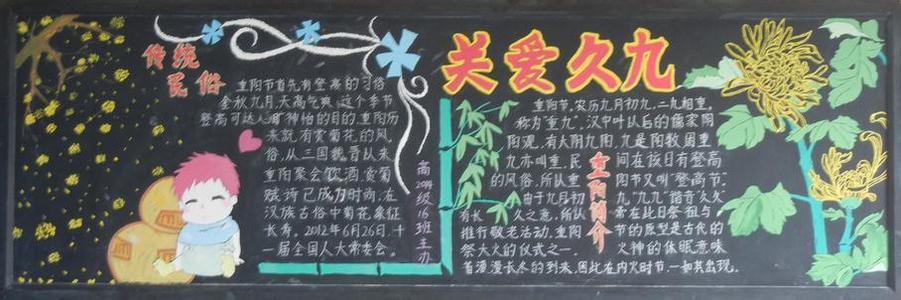 传统
民俗
重阳节首先有登高的习俗
金秋九月,天高气爽,这个季节
登高可达心旷神怡的目的.重阳历
来就有赏菊花的风
俗,从三国魏晋以来
重阳聚会饮酒,赏菊
赋诗已成为时尚.在
汉族古俗中菊花象征
长寿.2012年6月26日,十
一届全国人大常委会。
高2014级16班主办
关爱久九
重阳简介
重阳节,农历九月初九,二九相重,
称为"重九",汉中叶以后的儒家阴
阳观,有六阴九阳,九是阳数固重
九亦叫重 民间在该日有登高
的风俗,所以重 阳节又叫"登高节".
由于九月初 九"九九"谐音"久久"
有长 久之意,所以 常在此日祭祖与
推行敬老活动,重阳 节的原型是古代的
祭大火的仪式之一 火神的休眠意味
着漫漫长冬的到来,因此在内火时节,一如其出现.